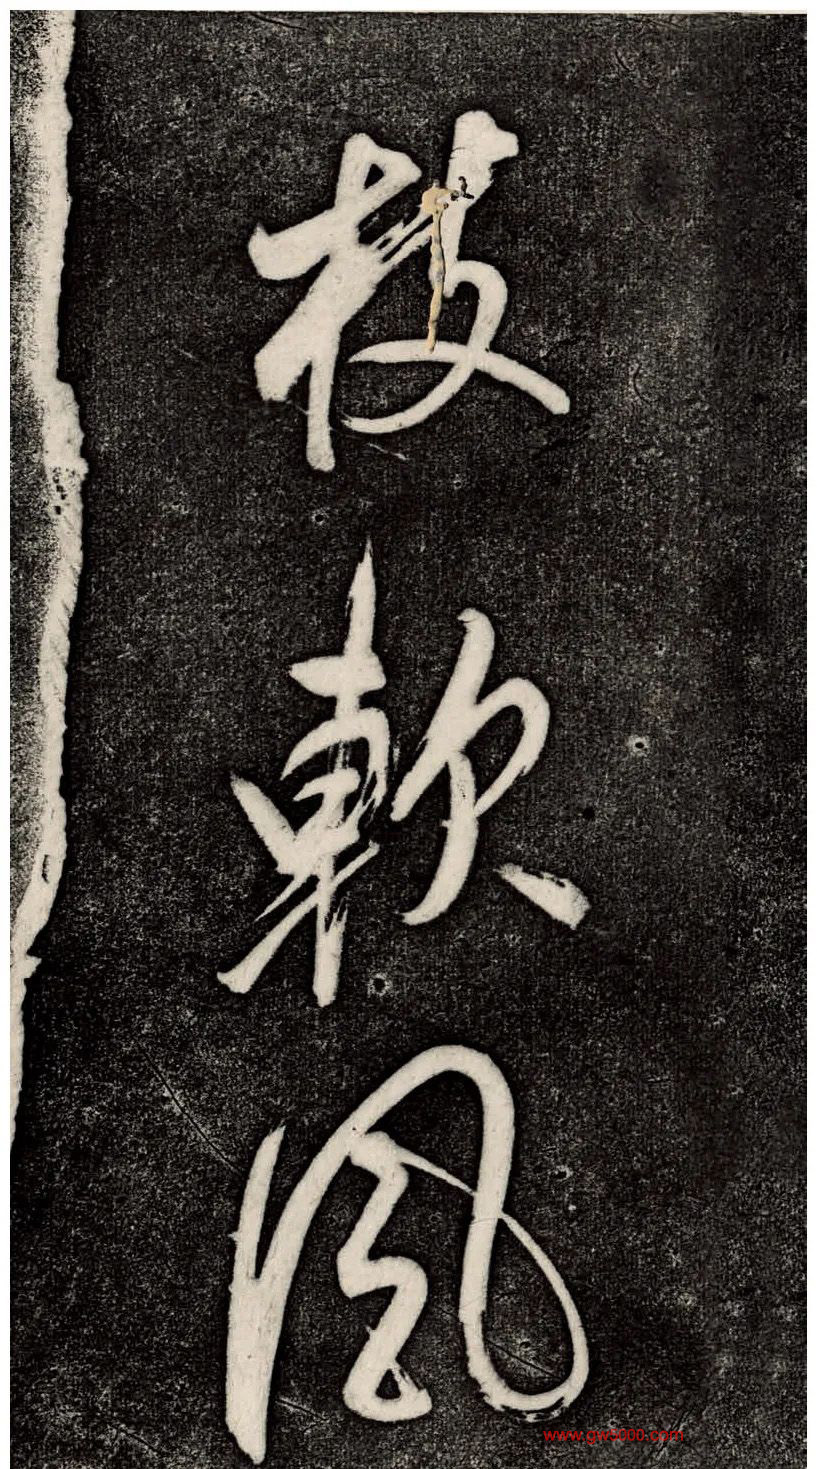 枝軟風
www.gws000.com